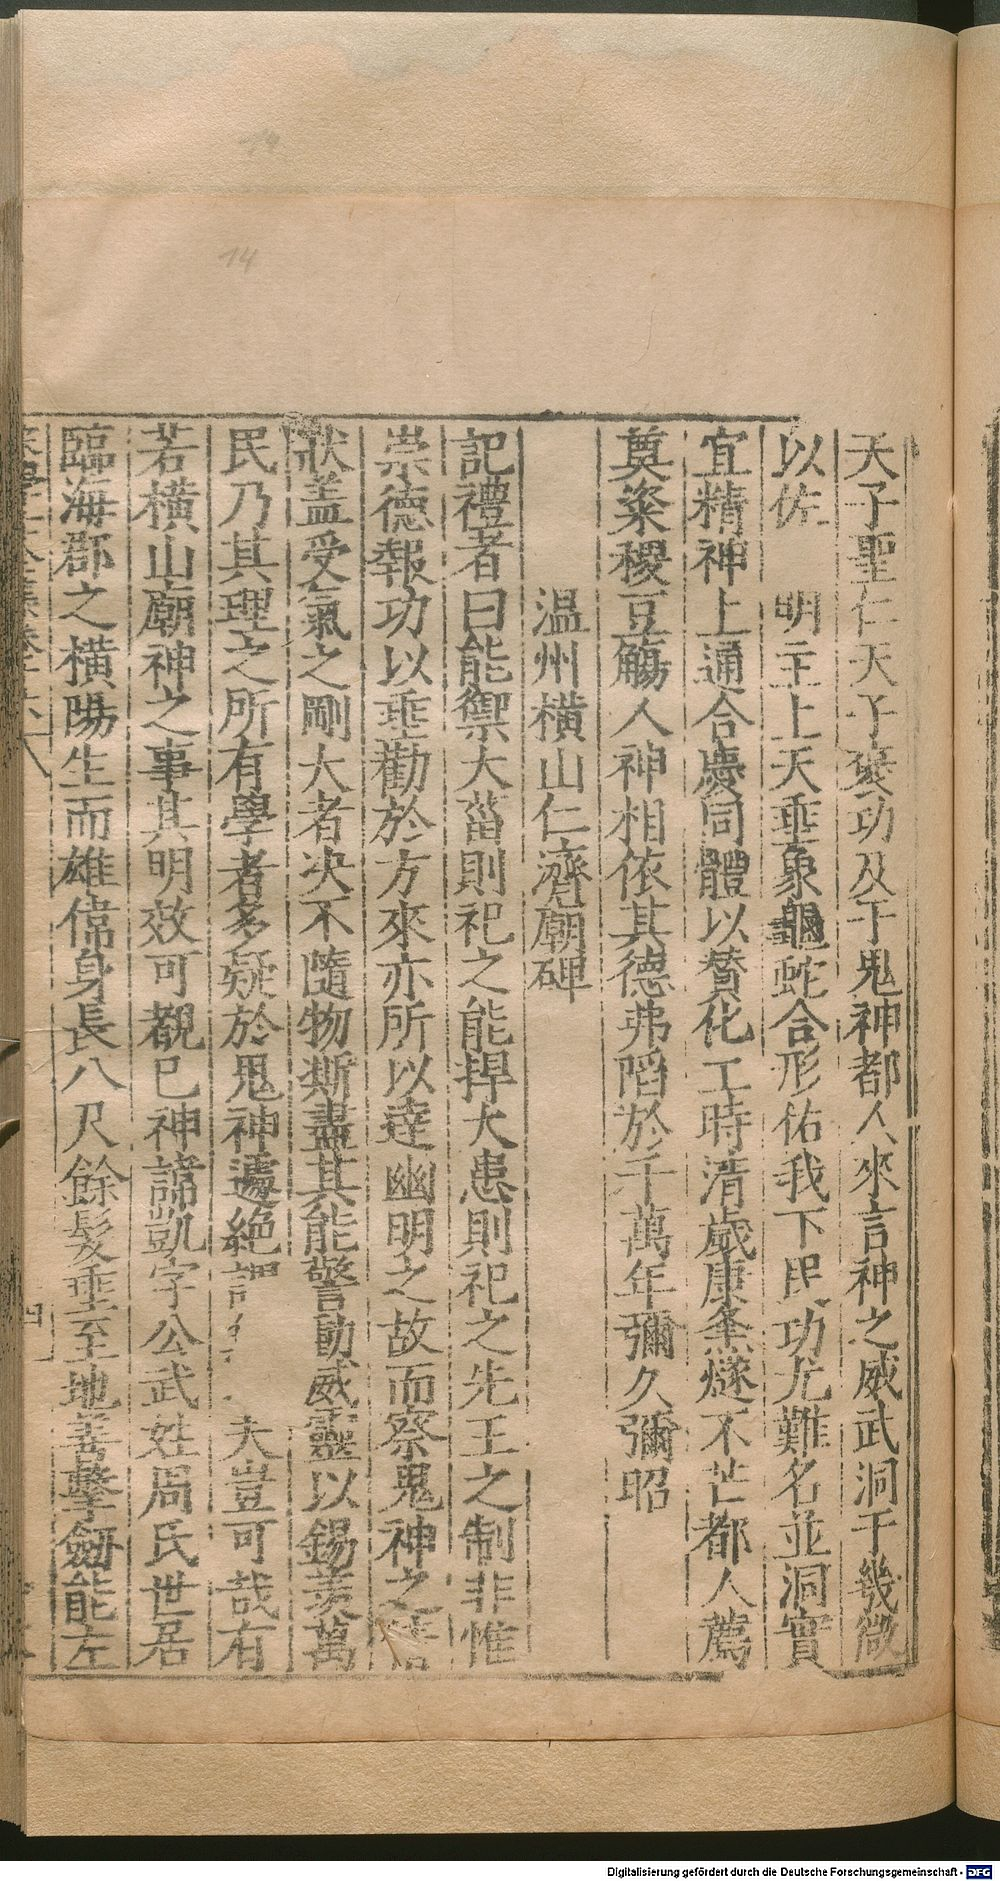 天子聖仁天子褒功及于鬼神都人來言神之威武洞于幾微
以佐 明主上天垂象龜蛇合形佑我下民功尤難名並洞實
宜精神上通合慶同體以贊化工時清歲康烽燧不芒都人薦
奠粢稷豆觴人神相依其德弗陷於千萬年彌久彌昭
温州橫山仁濟廟碑
記禮者曰能禦大菑則祀之能捍大患則祀之先王之制非惟
崇德報功以垂勸於方來亦所以達幽明之故而察鬼神之情
狀盖受氣之剛大者决不隨物澌盡其能警動威靈以錫羡萬
民乃其理之所有學者多疑於鬼神遽絶謂 夫豈可哉有
若橫山廟神之事其明效可覩已神諱凱字公武姓周氏世居
臨海郡之橫陽生而雄偉身長八尺餘髮垂至地善擊劒能左
四
14
14
Digitalisierung gefördert durch die Deutsche Forschungsgemeinschaft - DFG